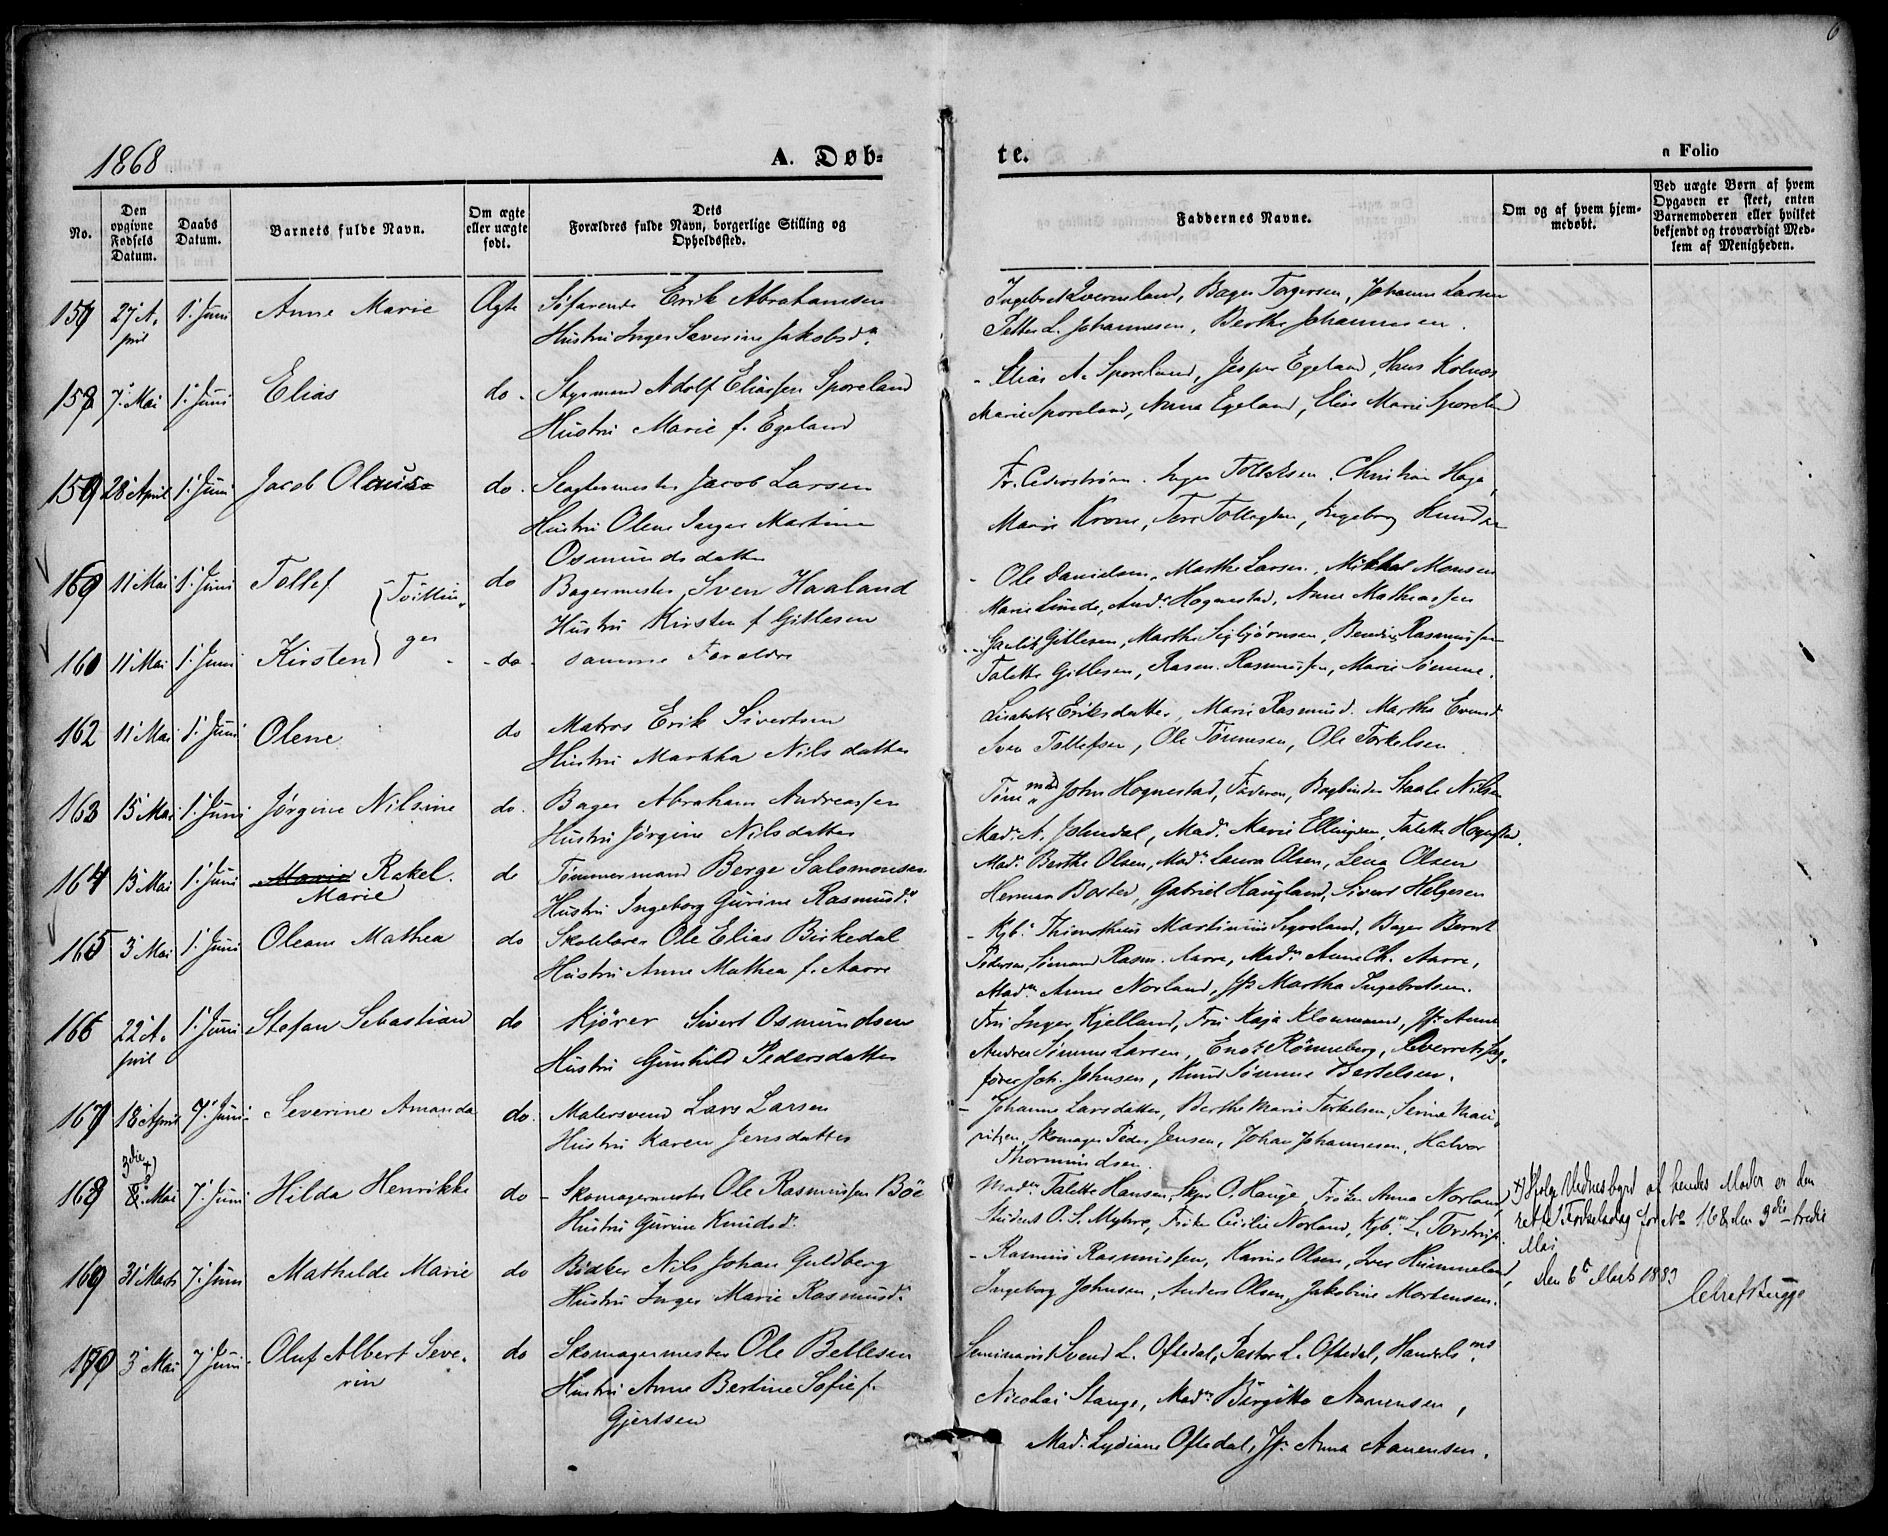 1868
A. Døb-
te.
n Folio
6
No.
Den opgivne Fødsels Datum.
Daabs Datum.
Barnets fulde Navn.
Om ægte eller uægte født.
Dets Forældres fulde Navn, borgerlige Stilling og Opholdssted.
Faddernes Navne.
Om og af hvem hjemmedøbt.
Ved uægte Børn af hvem Opgaven er skeet, enten Barnemoderen eller hvilket bekjendt og troværdigt Medlem af Menigheden.
157 27 A- 1' Juni Anne Marie Ægte Søfarende Erik Abrahamsen
pril Hustru Inger Severine Jakobsd.
Torgersen, Johanne Larsen
L. Johannesen, Berthe Johannesen.
158 7' Mai 1' Juni Elias do. Styrmand Adolf Eliassen Sporeland
Hustru Marie f. Egeland
Elias A. Sporeland, Jesper Egeland, Hans Kolnes
Marie Sporeland, Anna Egeland, Elias Marie Sporeland
159 28' April 1' Juni Jacob Olaus do. Slagtermester Jacob Larsen
Hustru Olene Inger Martine
Osmundsdatter
Fr. Cederstrøm. Inger Tollefsen. Christian Haga,
Marie Krone, Ingeborg
160 11 Mai 1' Juni Tollef Tvillin- do Bagermester Sven Haaland
Hustru Kirsten f. Gitlesen
Ole Danielsen, Marthe Larsen, Mikkel Monsen
Marie Lunde, And. Hognestad, Anne Mathiassen
160 11 Mai 1' Juni Kirsten ger do. samme Forældre
Gitlesen, Marthe Sigbjørnsen, Rasmussen
Talette Gitlesen, Rasm. Rasmussen, Marie Sømme.
162 11 Mai 1' Juni Olene do Matros Erik Sivertsen
Hustru Martha Nilsdatter
Lisabeth Eriksdatter, Marie Rasmusd. Martha Evensd
Sven Tollefsen, Ole Tønnesen, Ole Torkelsen.
163 15 Mai 1' Juni Jørgine Nilsine do. Bager Abraham Andreassen
Hustru Jørgine Nilsdatter
Tømmmd John Hognestad, Faderen, Bogbinder Staale Nilsen
Mad. A. Johndal, Mad. Marie Ellingsen, Talette Hognestad.
164 15 Mai 1' Juni Marie Rakel. do Tømmermand Berge Salomonsen
Marie Hustru Ingeborg Gurine Rasmusd.
Mad. Berthe Olsen, Mad. Laura Olsen, Lena Olsen
Herman Gabriel Haugland, Sivert Helgesen
165 3' Mai 1' Juni Oleane Mathea do Skolelærer Ole Elias Birkedal
Hustru Anne Mathea f. Aarre
Kjb. Thimotheus Martinius Bager Bernt
Pedersen, Sømand Rasm. Aarre, Mad. Anne Ch. Aarre,
Mad. Anne Norland, Jf. Martha Ingebretsen.
166 22' A- 1' Juni Stefan Sebastian do Kjører Sivert Osmundsen
pril Hustru Gunhild Pedersdatter
Fru Inger Kjelland, Fru Kaja Jf. Anne
Andrea Sømme Larsen, Enok Rønneberg, Overretssag-
fører Joh. Johnsen, Knud Sømme Bertelsen.
167 18' April 7' Juni Severine Amanda do. Malersvend Lars Larsen
Hustru Karen Jensdatter
Johanne Larsdatter, Berthe Marie Torkelsen, Serine Mau-
ritzen, Skomager Peder Jensen, Johan Johannesen, Halvor
Thormundsen.
3die x)
168 8. Mai 7' Juni Hilda Henrikke do Skomagermester Ole Rasmussen Bøe
Hustru Gurine Knudsd.
Mad. Talette Hansen, Skpr O. Hauge, Frøken Anna Norland,
Student O. S. Myhre, Frøken Cecilie Norland, Kjb. L. Torstrup.
x) Ifølge Vidnesbyrd af hendes Moder er den
rette Fødselsdag for No 168 den 3die - tredie
Mai
den 6te Marts 1883
Bugge
169 31' Marts 7' Juni Mathilde Marie do Bødker Nils Johan Guldberg
Hustru Inger Marie Rasmusd.
Rasmus Rasmussen, Karine Olsen, Iver Hummeland,
Ingeborg Johnsen, Anders Olsen, Jakobine Mortensen.
170 3' Mai 7' Juni Oluf Albert Seve- do Skomagermester Ole Bellesen
rin Hustru Anne Bertine Sofie f.
Gjertsen
Seminarist Svend L. Oftedal, Pastor L. Oftedal, Handelsmd
Nicolai Stange, Mad. Birgitte Aanensen,
Mad. Lydiane Oftedal, Jf. Anna Aanensen.